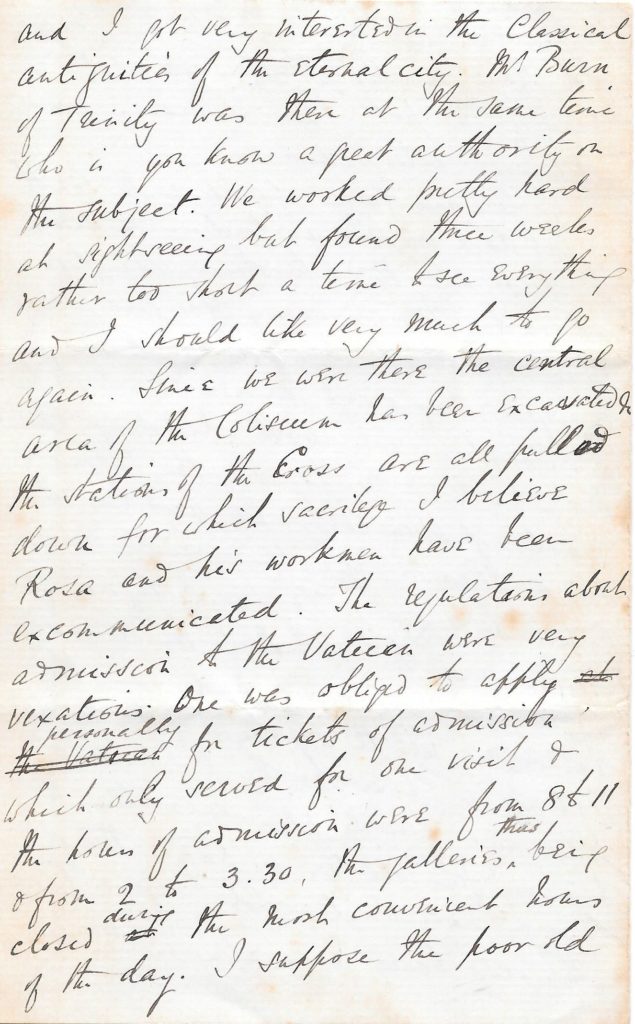 and I got very interested in the Classical
antiquities of the Eternal city. Mr Burn
of Trinity was there at the same time
who is you know a great authority on
the subject. We worked pretty hard
at sightseeing but found three weeks
rather too short a time to see everything
and I should like very much to go
again. Since we were there the central
area of the Coliseum has been excavated &
the stations of the Cross are all pulled
down for which sacrilege I believe
Rosa and his workmen have been
excommunicated. The regulations about
admission to the Vatican were very
vexatious. One was obliged to apply at
personally
the Vatican for tickets of admission,
which only served for one visit &
the hours of admission were from 8 to 11
thus
& from 2 to 3.30, the galleries, being
during
closed at the most convenient hours
of the day. I suppose the poor old